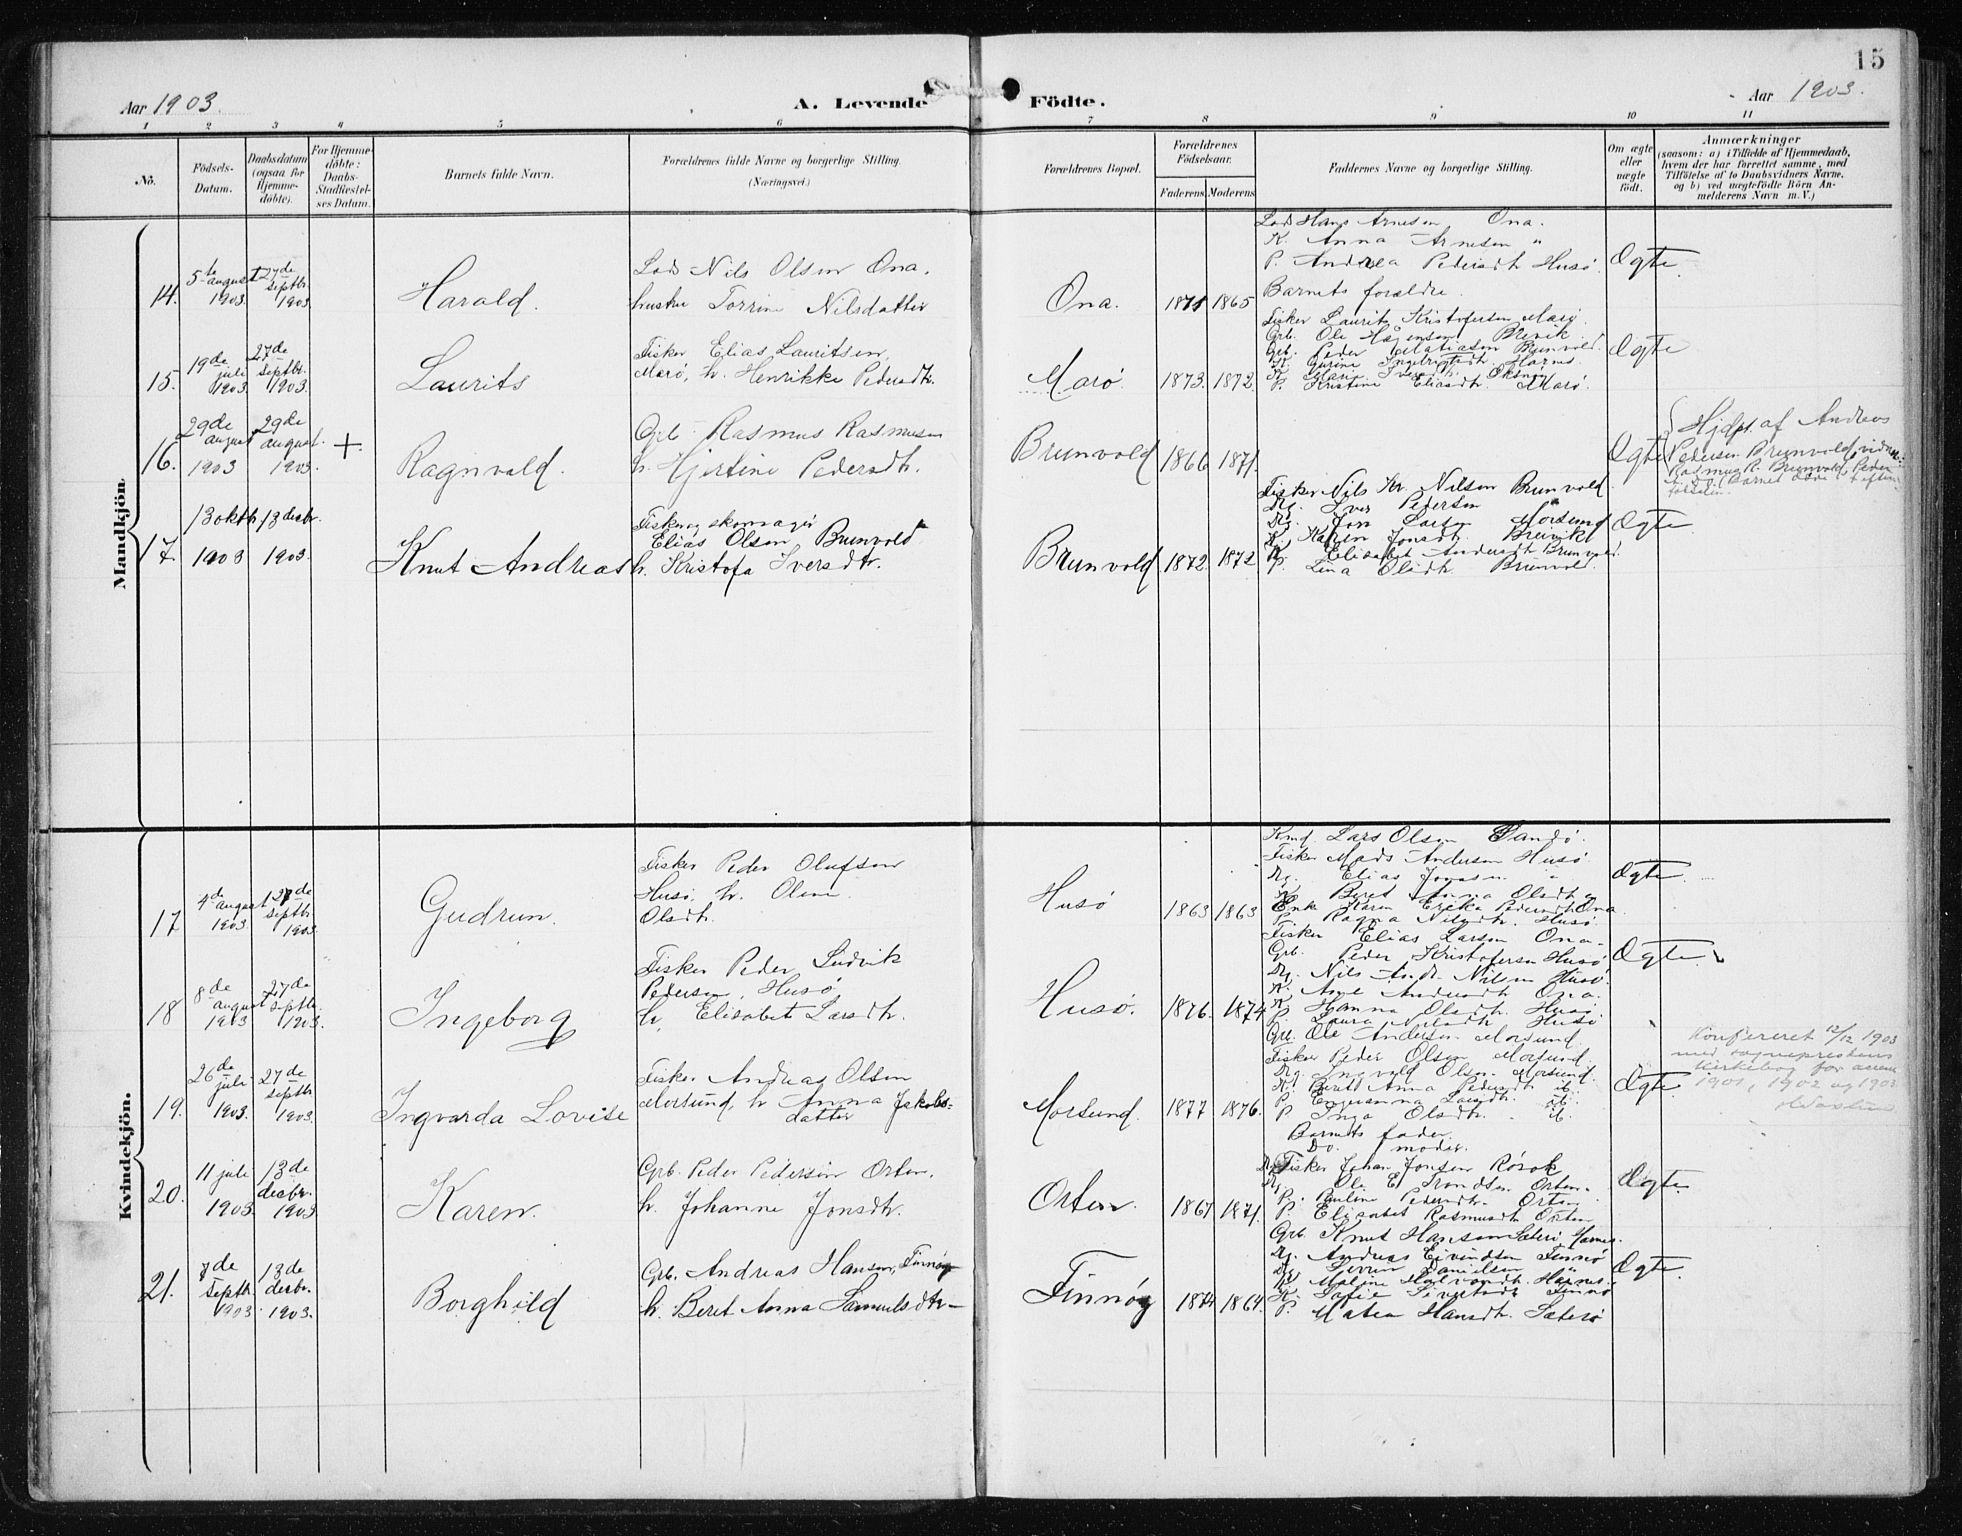 15
Aar 1903.
A. Levende Födte.
Aar 1903.
1 2 3 4 5 6 7 8 9 10 11
No.
Födsels-Datum.
Daabsdatum (ogsaa for Hjemme-döbte).
For Hjemme-döbte: Daabs-Stadfæstel-ses Datum.
Barnets fulde Navn.
Forældrenes fulde Navne og borgerlige Stilling.
(Næringsvei.)
Forældrenes Bopæl.
Forældrenes Födselsaar.
Faderens Moderens
Faddernes Navne og borgerlige Stilling.
Om ægte eller uægte födt.
Anmærkninger
(saasom: a) i Tilfælde af Hjemmedaab,
hvem der har forrettet samme, med
Tilföielse af to Daabsvidners Navne,
og b) ved uægtefödte Börn An-
melderens Navn m. V.)
Mandkjön.
14. 5te august 1903 27de septbr 1903. Harald.
Lods Nils Olsen Ona.
hustru Torrine Nilsdatter
Ona. 1871 1865
Lods Hans Arnesen Ona.
K. Anna Arnesen "
P. Andrea Pedersdtr Husö.
Barnets forældre.
Ægte.
15. 19de juli 1903. 27de septbr. 1903. Laurits
Fisker Elias Lauritsen,
Marö, h. Henrikke Pedersdtr.
Marö. 1873. 1872
Fisker Laurits Kristofersen Marö.
Grb. Ole
Grb. Peder Matiasen Brunvold.
P. Kristine Eliasdtr. Marö.
Ægte
16. 29de august 1903 29de august. 1903. + Ragnvald.
Grb. Rasmus Rasmusen
h. Hjertine Pedersdtr.
Brunvold 1866 1871.
Ægte
Hjdpt. af Andreas
Pedersen Brunvold, vidner:
Rasmus R. Brunvold, Peder
17. 13 oktbr. 1903 13 desbr. 1903. Knut Andreas
Fisker og skomager
Elias Olsen Brunvold
h. Kristofa Iversdtr.
Brunvold 1872 1872
Fisker Nils Kr. Nilsen Brunvold.
Ug. Iver Pedersen "
Ug. Jon Larsen Morsund
K. Karen Jonsdtr. Breivik
K. Elisabet Andersdtr Brunvold.
P. Lina Olsdtr. Brunvold.
Ægte
Kvindekjön.
17 4de august 1903. 27de septbr 1903. Gudrun.
Fisker Peder Olufsen
Husö, h. Oline
Olsdtr.
Husö 1863 1863
Kmd. Lars Olsen Sandö.
Fisker Mads Andersen Husö.
Ug. Elias Jonasen "
K. Beret Anna Olsdtr "
Enke Karen Erika Pedersdtr Ona
P. Ragna Nilsdtr. Husö.
Ægte.
18 8de august 1903 27de septbr. 1903. Ingeborg
Fisker Peder Ludvik
Pedersen, Husö
h. Elisabet Larsdtr.
Husö. 1876. 1874
Fisker Elias Larsen Ona.
Grb. Peder Kristofersen Husö
Ug. Nils Andr. Nilsen Husö.
K. Ane Andersdtr Ona.
K. Hanna Olsdtr. Husö.
P. Laura Nilsdtr Husö
Ægte.
19. 26de juli 1903. 27de septbr 1903. Ingvarda Lovise
Fisker Andreas Olsen
Morsund, h. Anna Jakobs-
datter
Morsund. 1877 1876.
Grb. Ole Andersen Morsund.
Fisker Peder Olsen Morsund.
Ug. Ingvald Olsen Morsund.
K. Berit Anna Pedersdtr ib.
P. Inga Olsdtr. ib
Barnets fader.
Do. moder.
Ægte.
Konfereret 12/12 1903
med sogneprestens
kirkebog for aarene
1901, 1902 og 1903
20. 11 juli 1903. 13de desbr. 1903. Karen.
Grb. Peder Pedersen Orten.
h. Johanne Jonsdtr.
Orten. 1867 1871.
Fisker Johan Jonsen Rösok
Ug. Ole E. Trondsen Orten.
P. Pauline Pedersdtr. Orten
P. Elisabet Rasmusdtr Orten
Ægte.
21. 7de septbr. 1903. 13de desbr. 1903. Borghild
Grb. Andreas Hansen, Finnöy
h. Beret Anna Samuelsdtr
Finnöy 1874 1864.
Grb. Knut Hansen Säterö Harnes.
Ug. Andreas Eivindsen Finnö
Ug. Sevrin Danielsen "
K. Maline Halvorsdtr. Harnes.
K. Sofie Sivertsdtr Finnö
P. Matea Hansdtr. Säterö
Ægte.